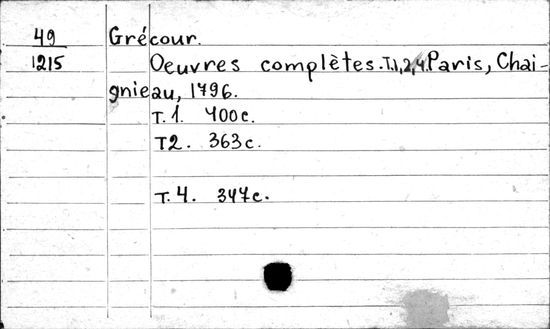 49
1215
Grécour.
Oeuvres complètes. T.1,2,4. Paris, Chai-
gnieau, 1796.
T. 1. 400c.
T2. 363c.
T. 4. 347c.